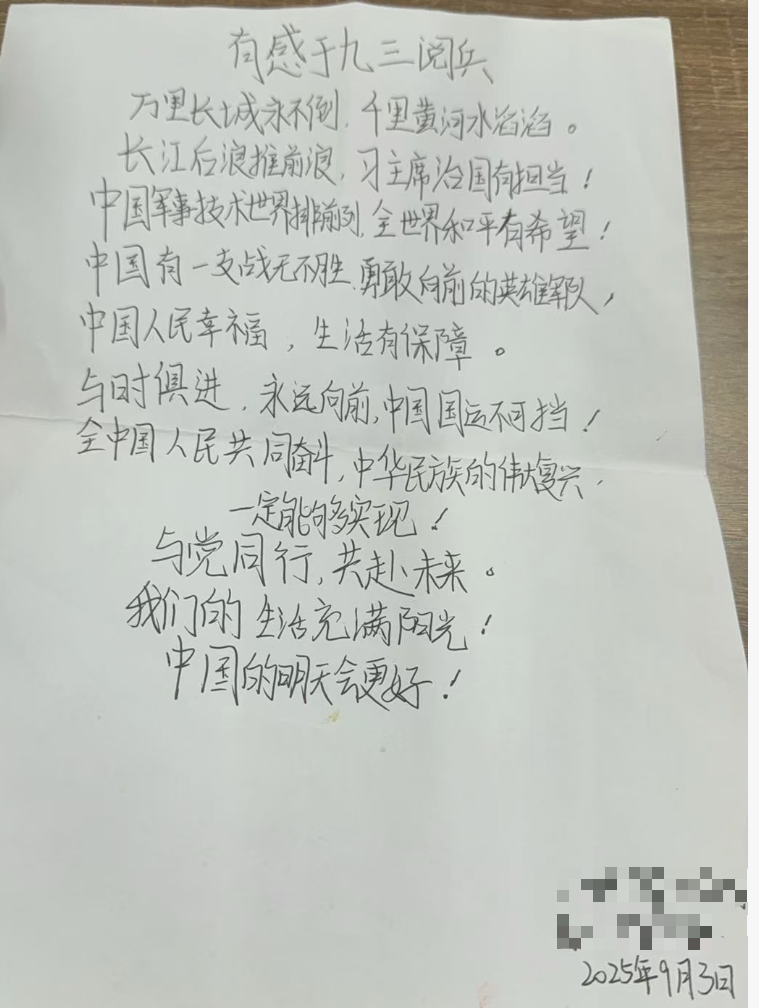 有感于九三阅兵
万里长城永不倒,千里黄河水滔滔。
长江后浪推前浪,习主席治国有担当!
中国军事技术世界排前列,全世界和平有希望!
中国有一支战无不胜、勇敢向前的英雄军队,
中国人民幸福,生活有保障。
与时俱进,永远向前,中国国运不可挡!
全中国人民共同奋斗,中华民族的伟大复兴,
一定能够实现!
与党同行,共赴未来。
我们的生活充满阳光!
中国的明天会更好!
2025年9月3日